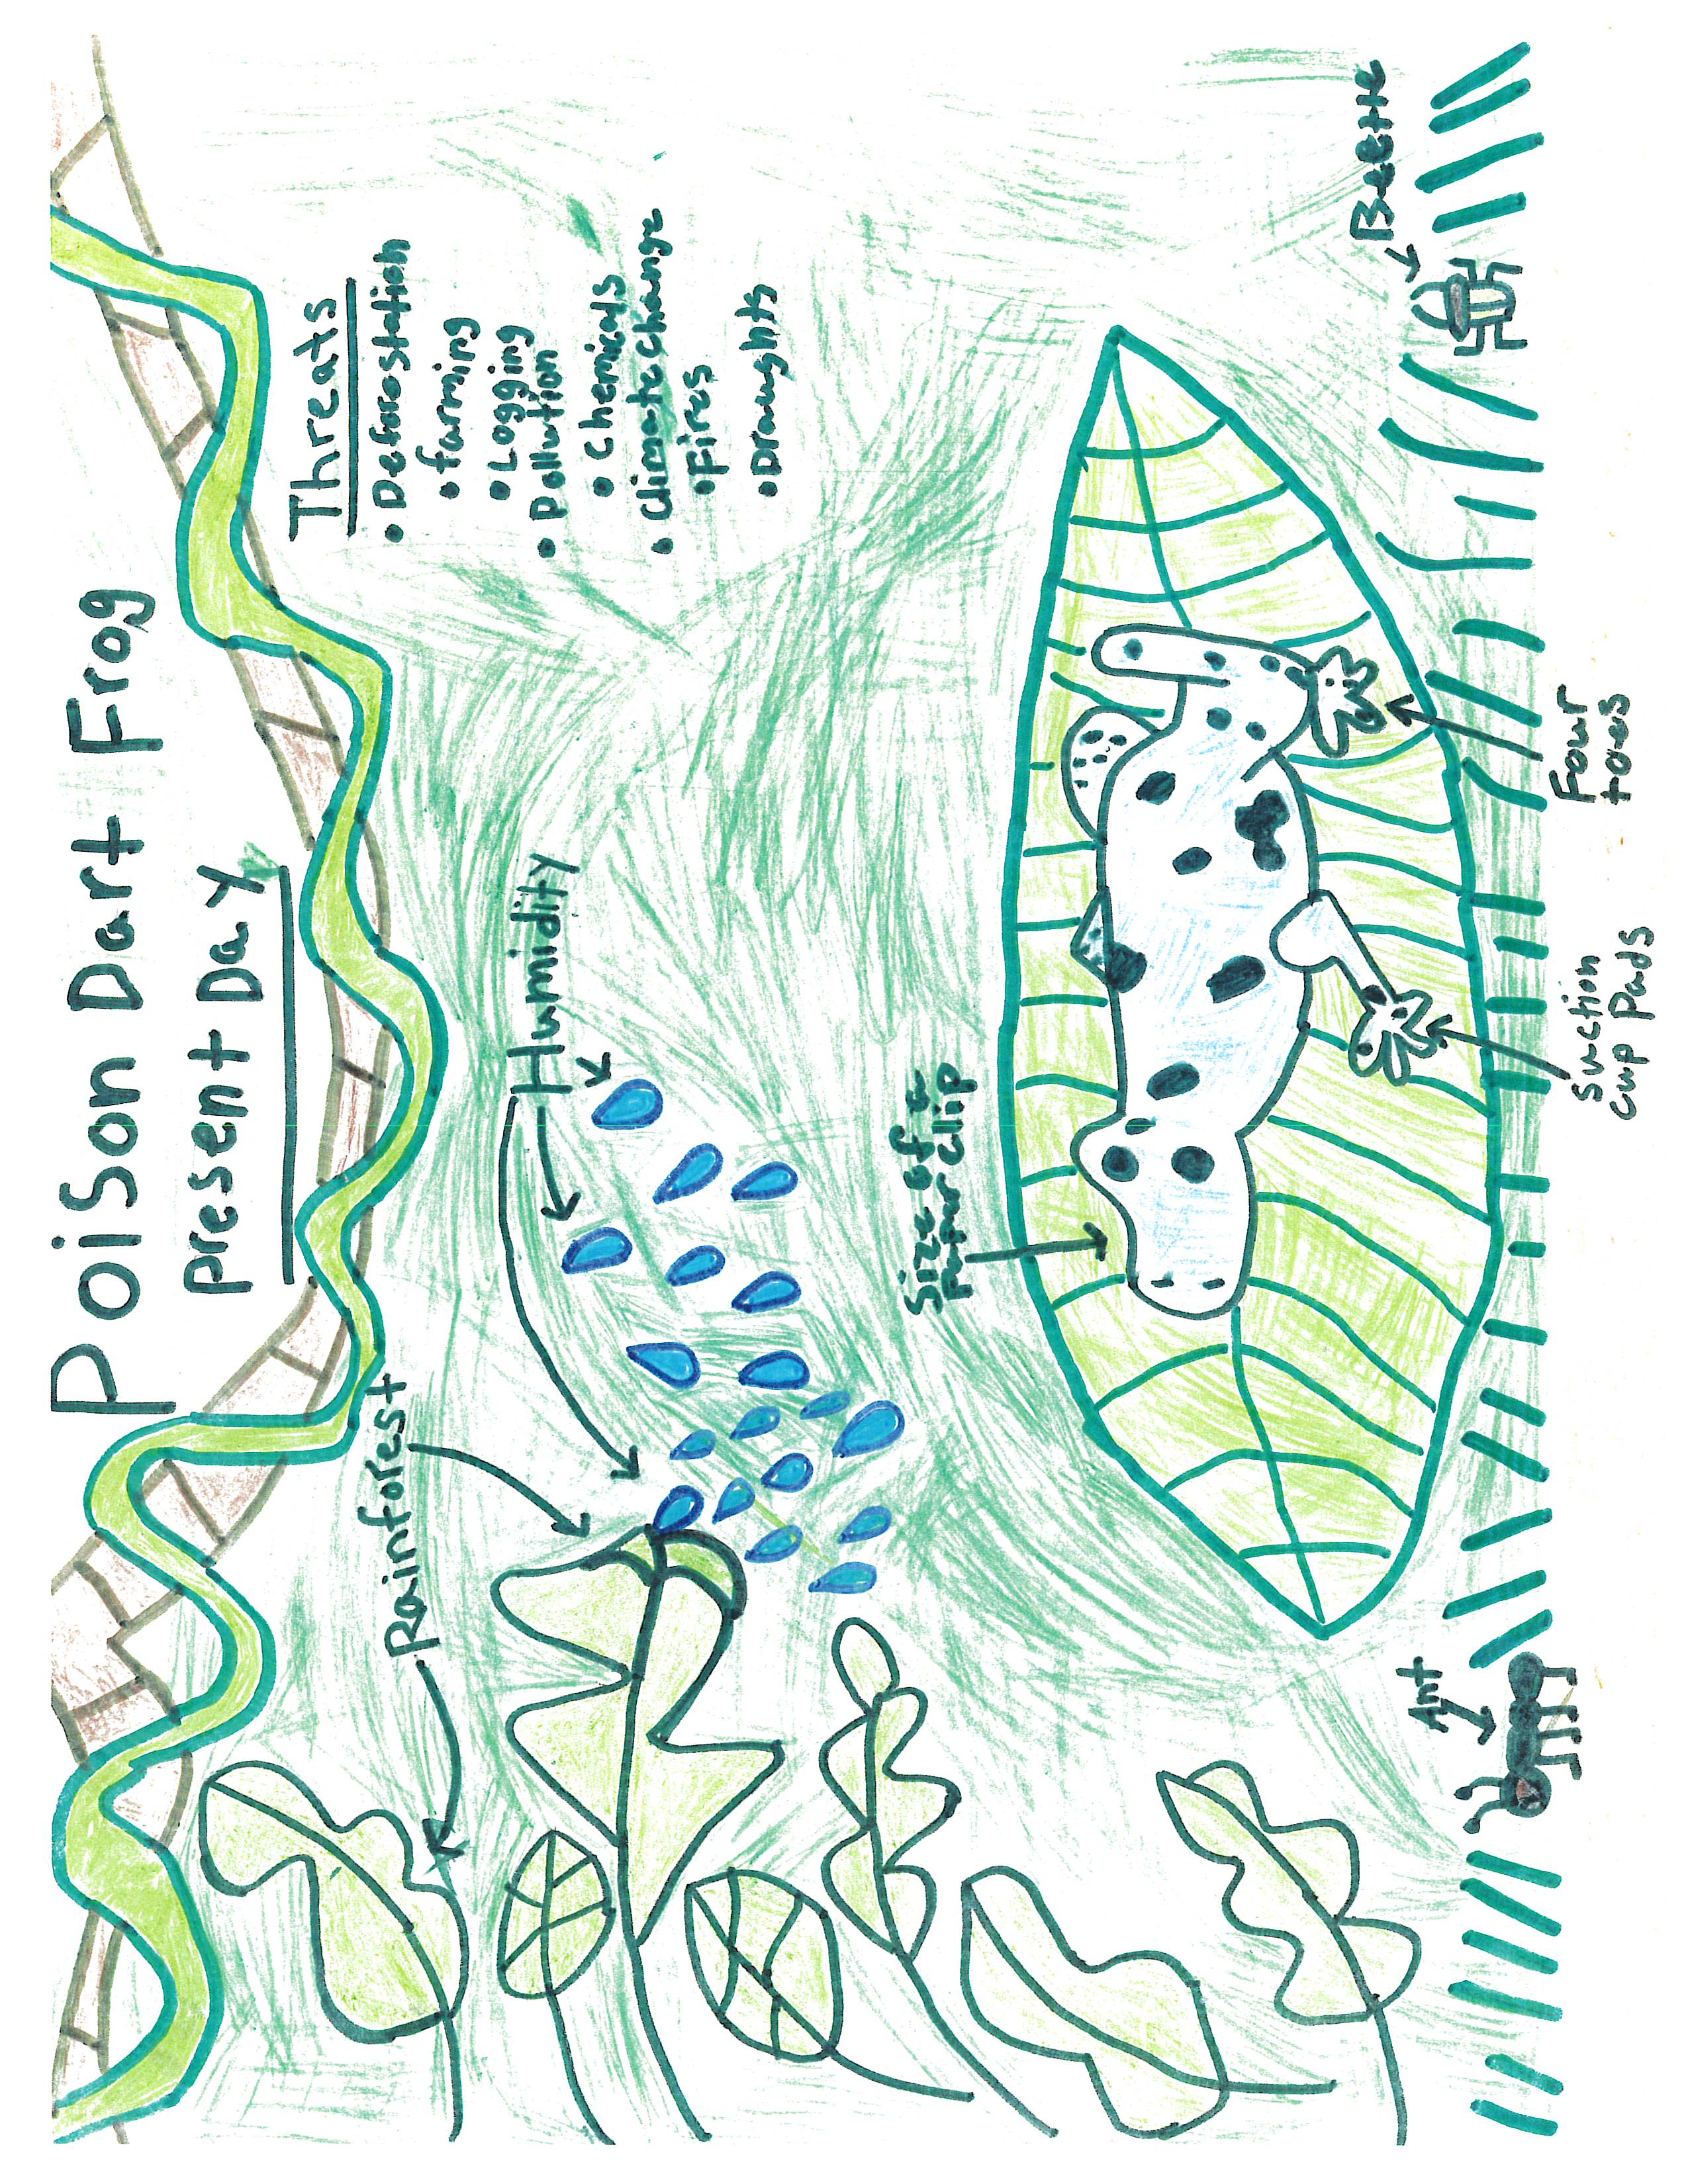 Poison Dart Frog
Present Day
Threats
• Deforestation
• farming
• Logging
• Pollution
• Chemicals
• climate change
• Fires
• Draughts
Rainforest
Humidity
Size of a
paper clip
Ant
Beetle
suction
cup pads
Four
toes